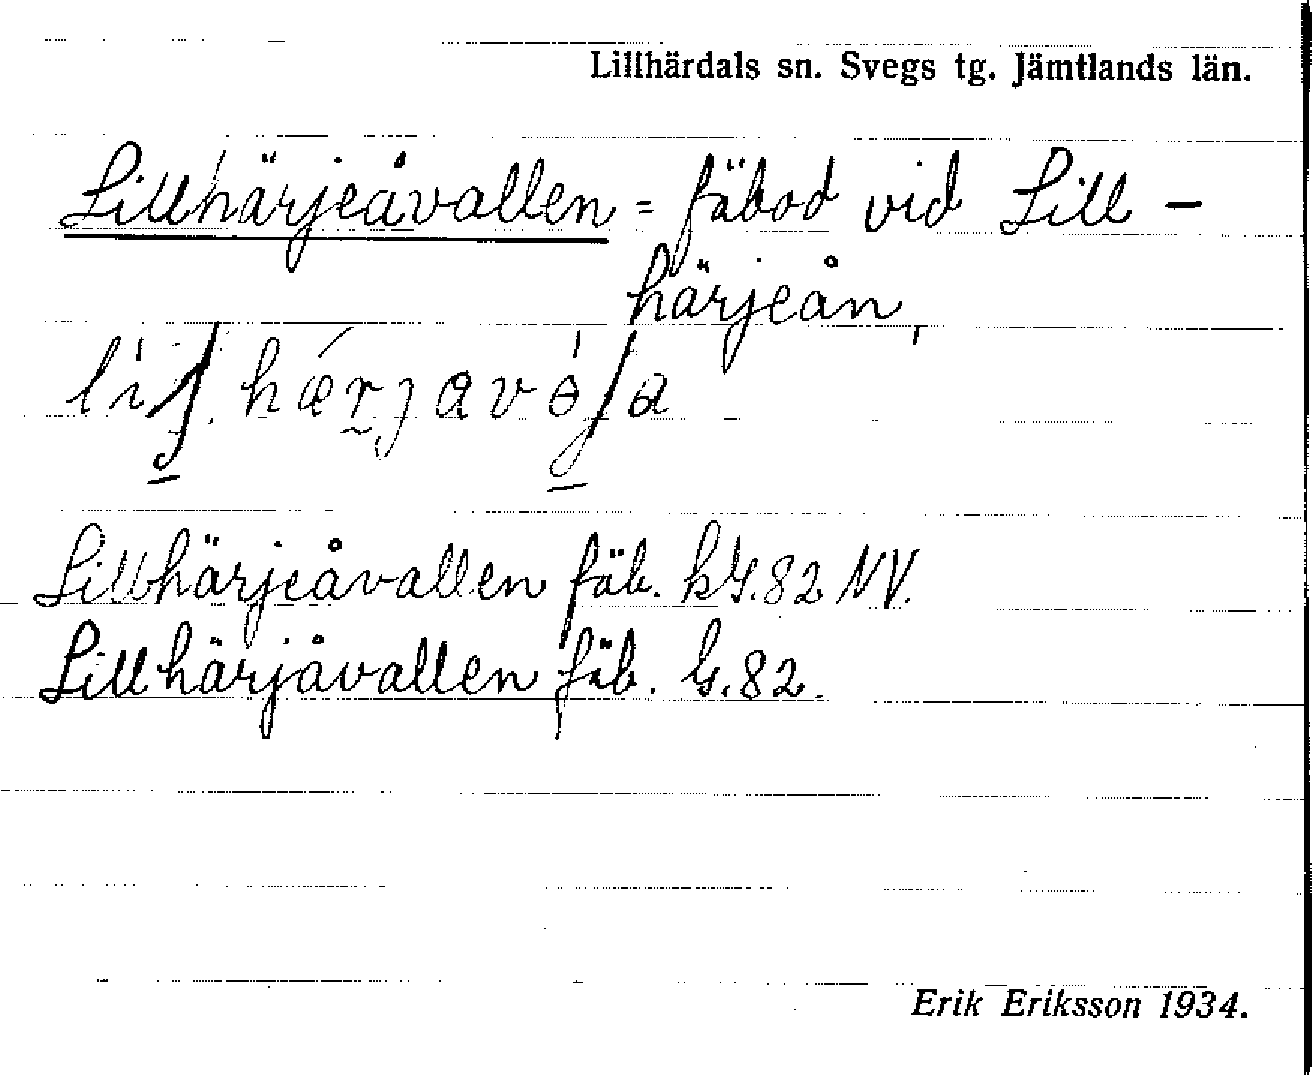 Lillhärdals sn. Svegs tg. Jämtlands län.
Lillhärjeåvallen = fäbod vid Lill-
härjeån,
Lillhärjeåvallen fäb. kG.82 NV.
Lillhärjåvallen fäb. G.82.
Erik Eriksson 1934.